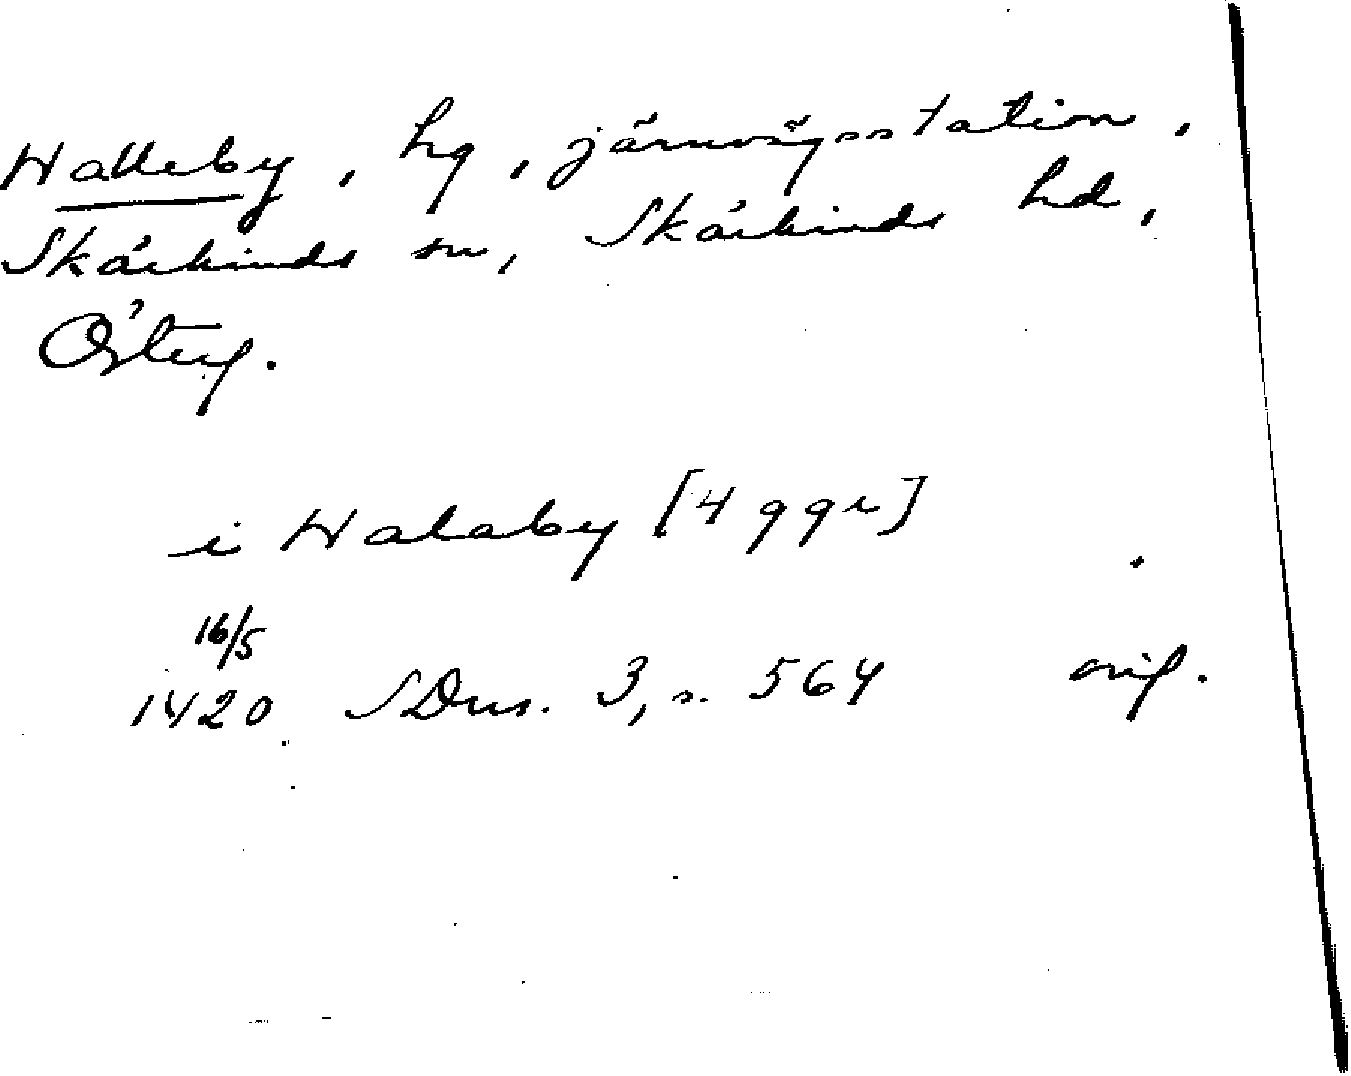 Walleby, hg, järnvägsstation,
Skärkinds sn, Skärkinds hd,
Österg.
i Walaby [4 ggr]
16/5
1420 SDns. 3, s. 564 orig.